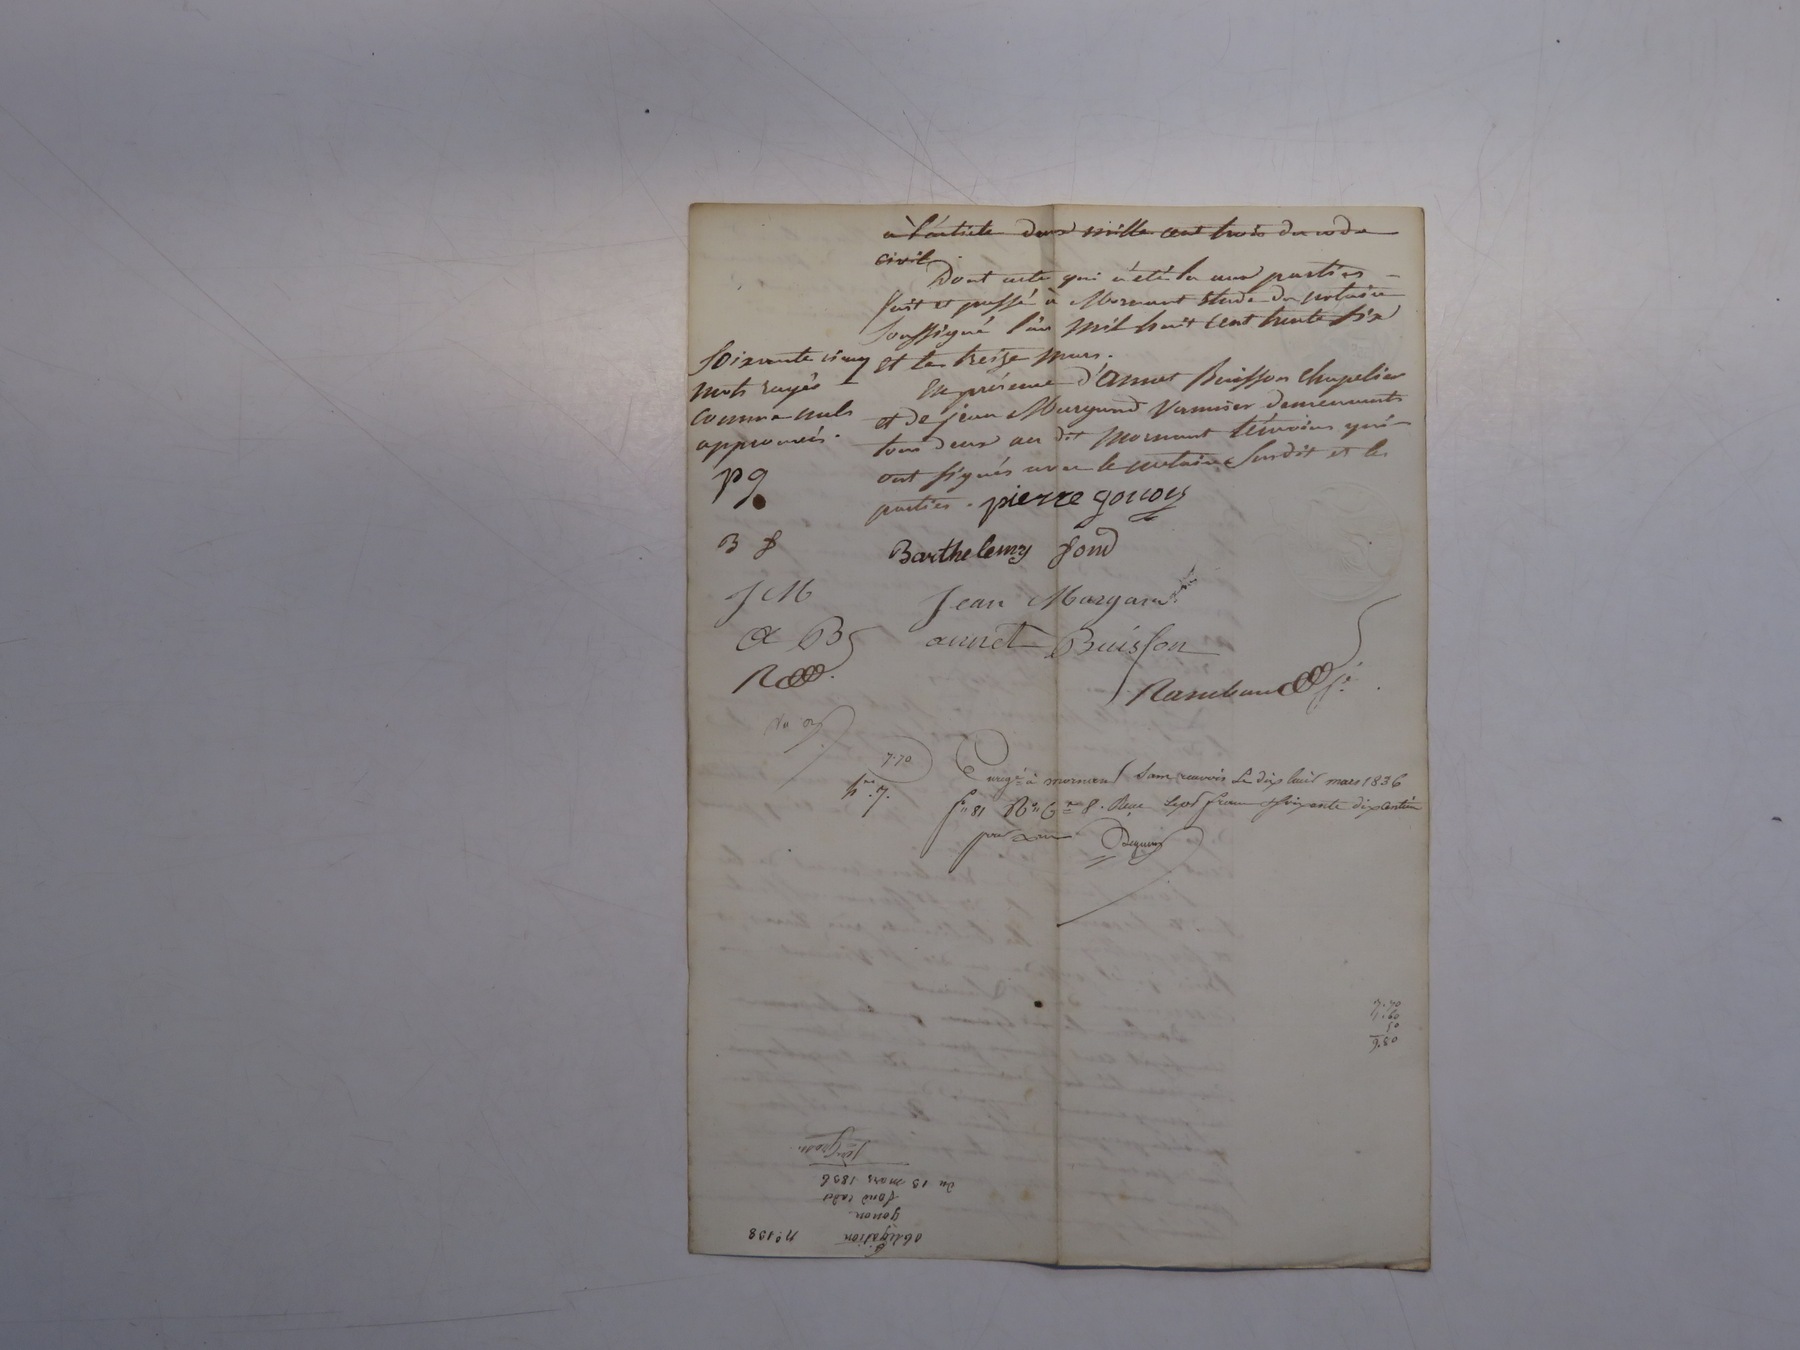 à l'article deux mille cent trois du code
civil.
Dont acte qui a été lu aux parties
fait et passé à Mornant étude du notaire
soussigné l'an mil huit cent trente six
et le treize mars.
En présence d'annet Buisson chapelier
et de jean Margand demeurants
tous deux au dit Mornant témoins qui
ont signés avec le notaire susdit et les
parties. pierre gonon
Soixante cinq
mots rayés
comme nuls
approuvés.
pg
B f
J M
a B
R
Barthelemy fond
Jean Margand
annet Buisson
Rambaud
7.70
à mornant sans renvois Le dix huit mars 1836
fo 81 Ro Co 8. Reçu sept francs soixante dix centim
7.70
1.60
50
9.80
No 138
obligation
gonon
fond
du 13 mars 1836